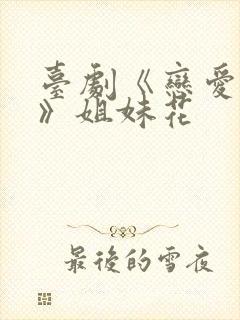 臺劇《戀愛
》姐妹花
最後的雪夜